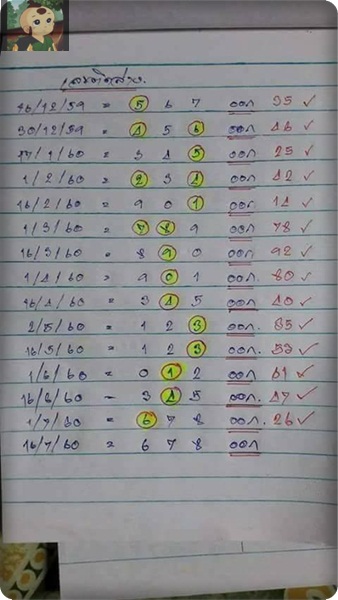 เลขติดสาม.
16/12/59 = 5 6 7 ออก 35 ✓
30/12/59 = 4 5 6 ออก 46 ✓
17/1/60 = 3 4 5 ออก 25 ✓
1/2/60 = 2 3 4 ออก 42 ✓
16/2/60 = 9 0 1 ออก 14 ✓
1/3/60 = 7 8 9 ออก 78 ✓
16/3/60 = 8 9 0 ออก 92 ✓
1/4/60 = 9 0 1 ออก. 80 ✓
16/4/60 = 3 4 5 ออก 40 ✓
2/5/60 = 1 2 3 ออก. 85 ✓
16/5/60 = 1 2 3 ออก. 53 ✓
1/6/60 = 0 1 2 ออก. 61 ✓
16/6/60 = 3 4 5 ออก. 47 ✓
1/7/60 = 6 7 8 ออก. 26 ✓
16/7/60 = 6 7 8 ออก